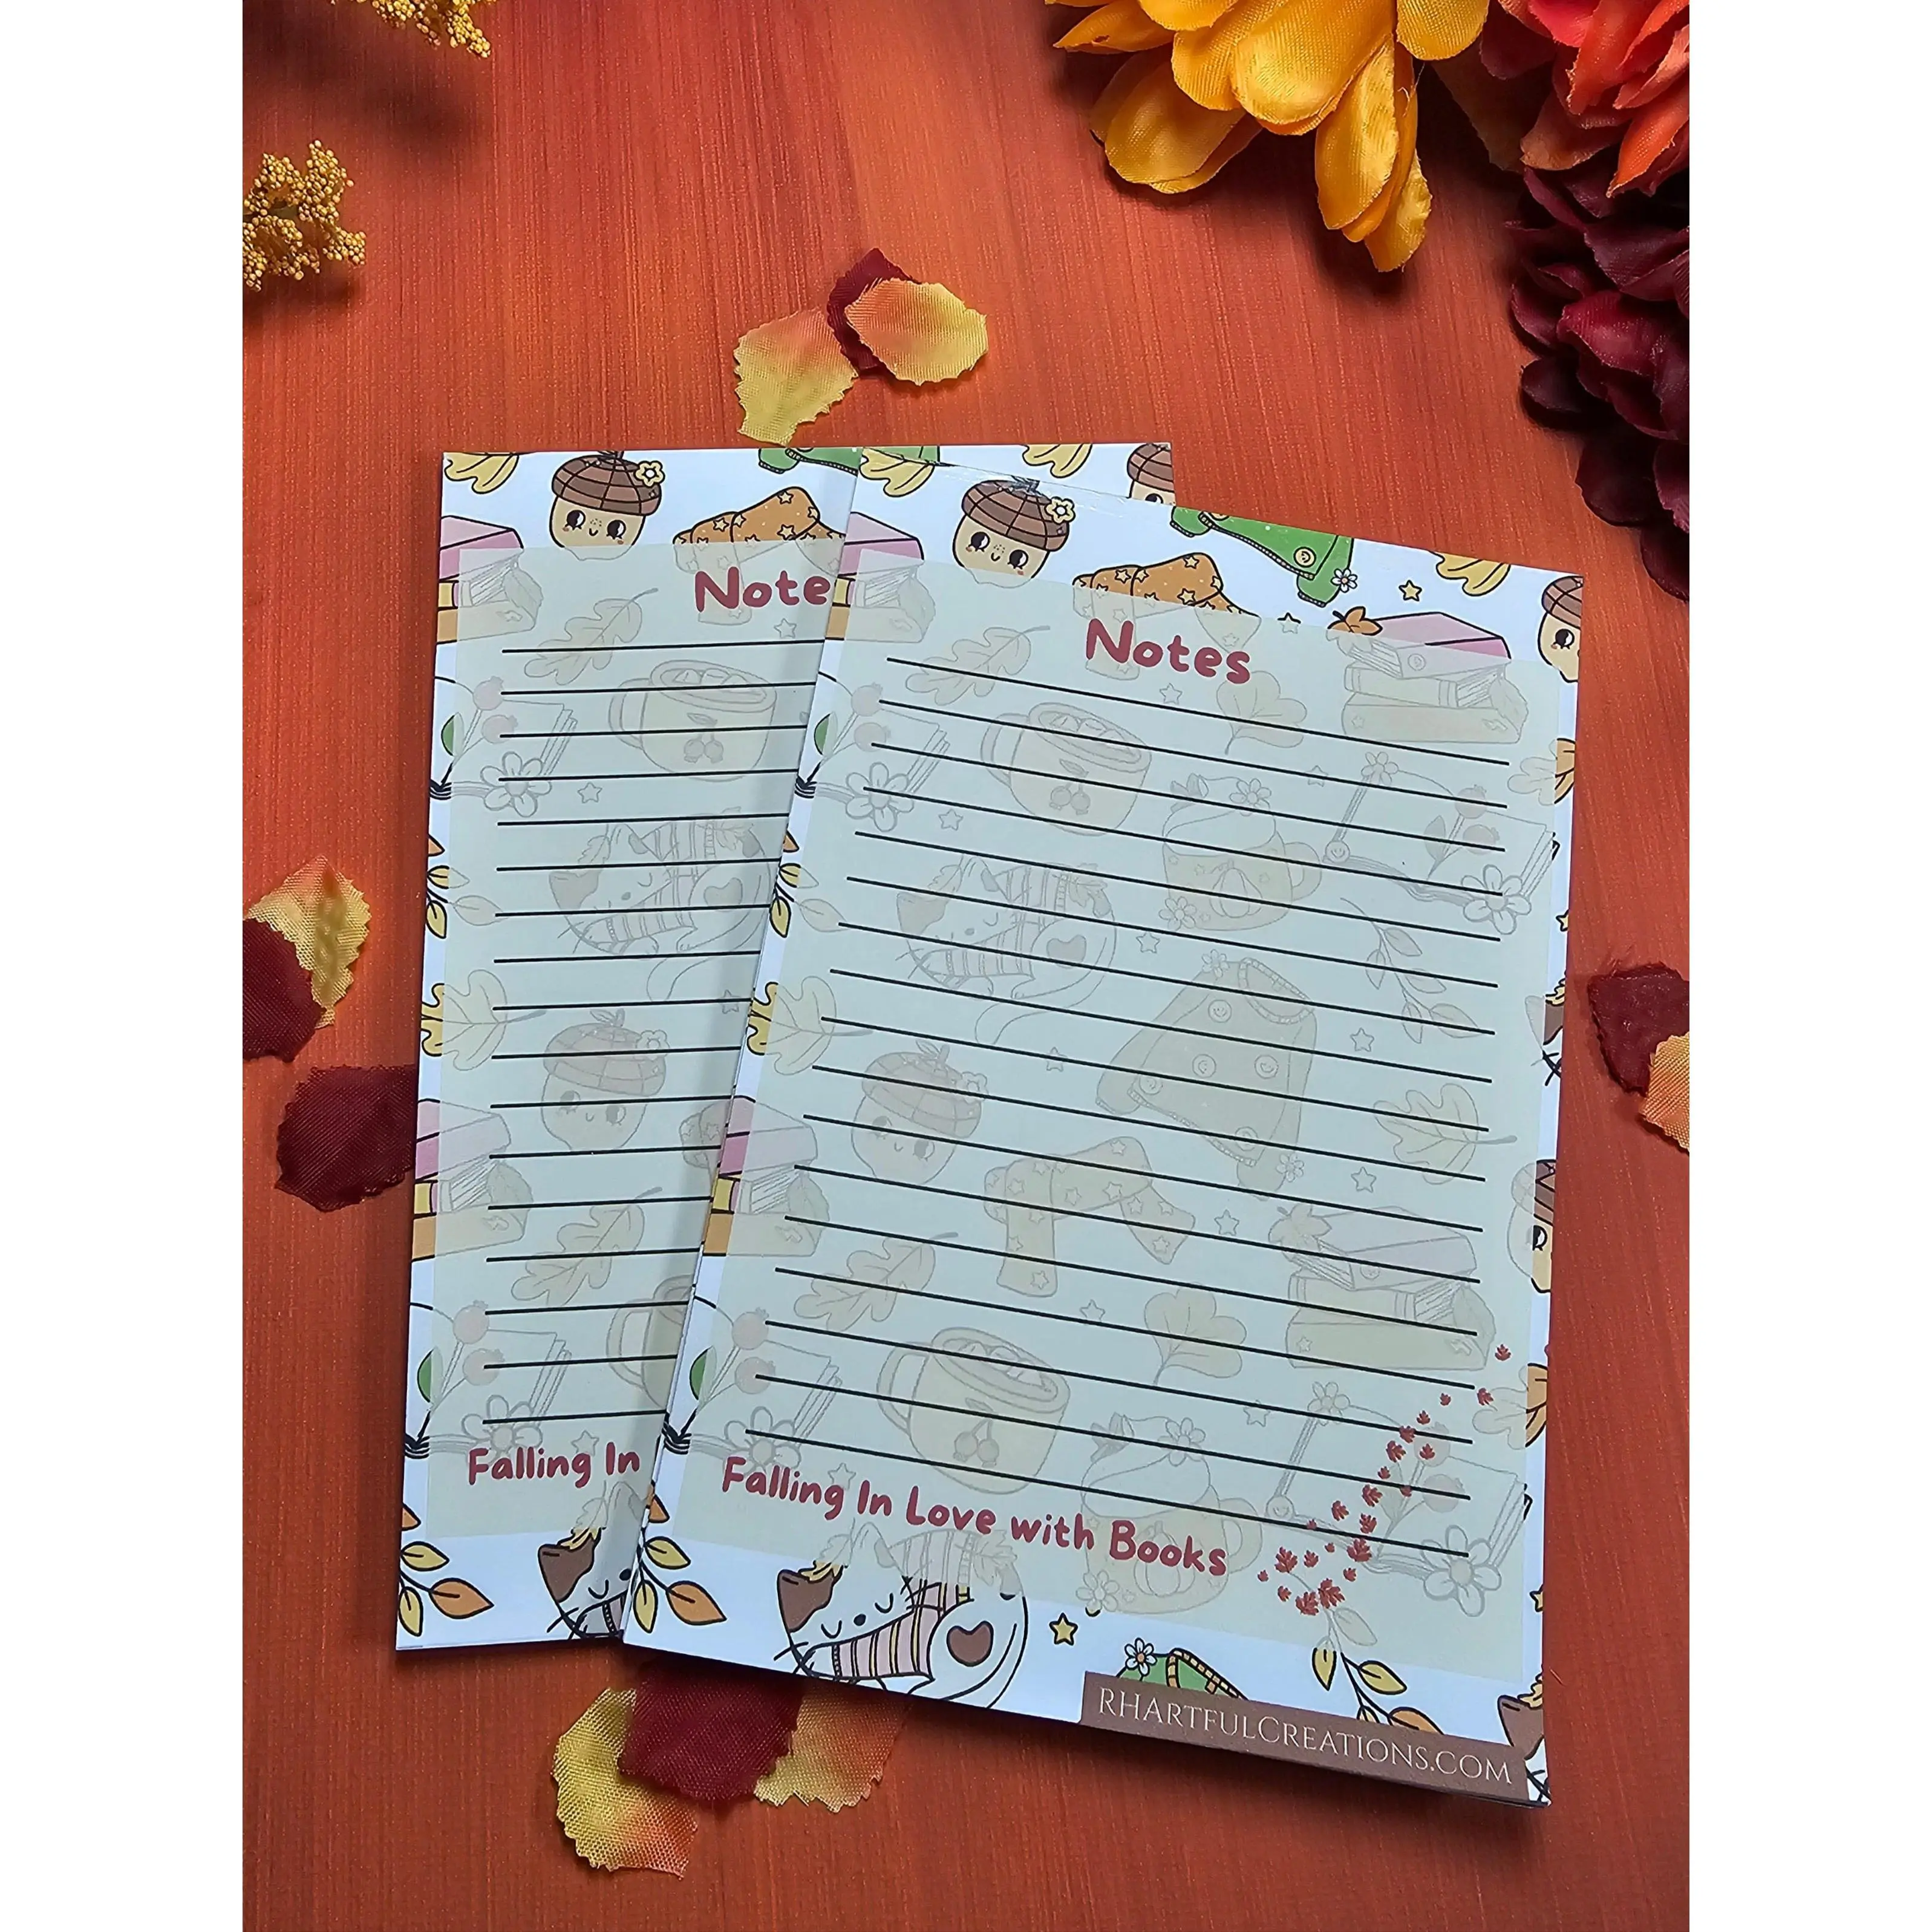 Note
Falling In
Notes
Falling In Love with Books
RHArtfulCreations.com